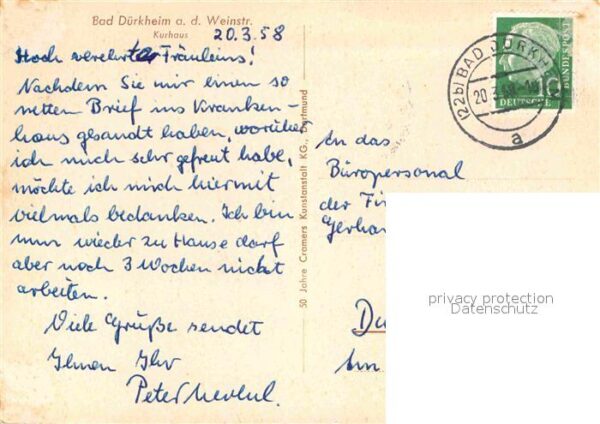 Bad Dürkheim a. d. Weinstr.
Kurhaus
20.3.58
Hoch verehrte Fräuleins!
Nachdem Sie mir einen so
netten Brief ins Kranken-
haus gesandt haben, worüber
ich mich sehr gefreut habe,
möchte ich mich hiermit
vielmals bedanken. Ich bin
nun wieder zu Hause darf
aber noch 3 Wochen nicht
arbeiten.
Viele Grüße sendet
Ihnen Ihr
Peter
50 Jahre Cramers Kunstanstalt KG., Dortmund
(22b) BAD DÜRKH
20.3.58
a
DEUTSCHE
BUNDESPOST
An das
Büropersonal
der Fi
Gerha
Du
Am
privacy protection
Datenschutz